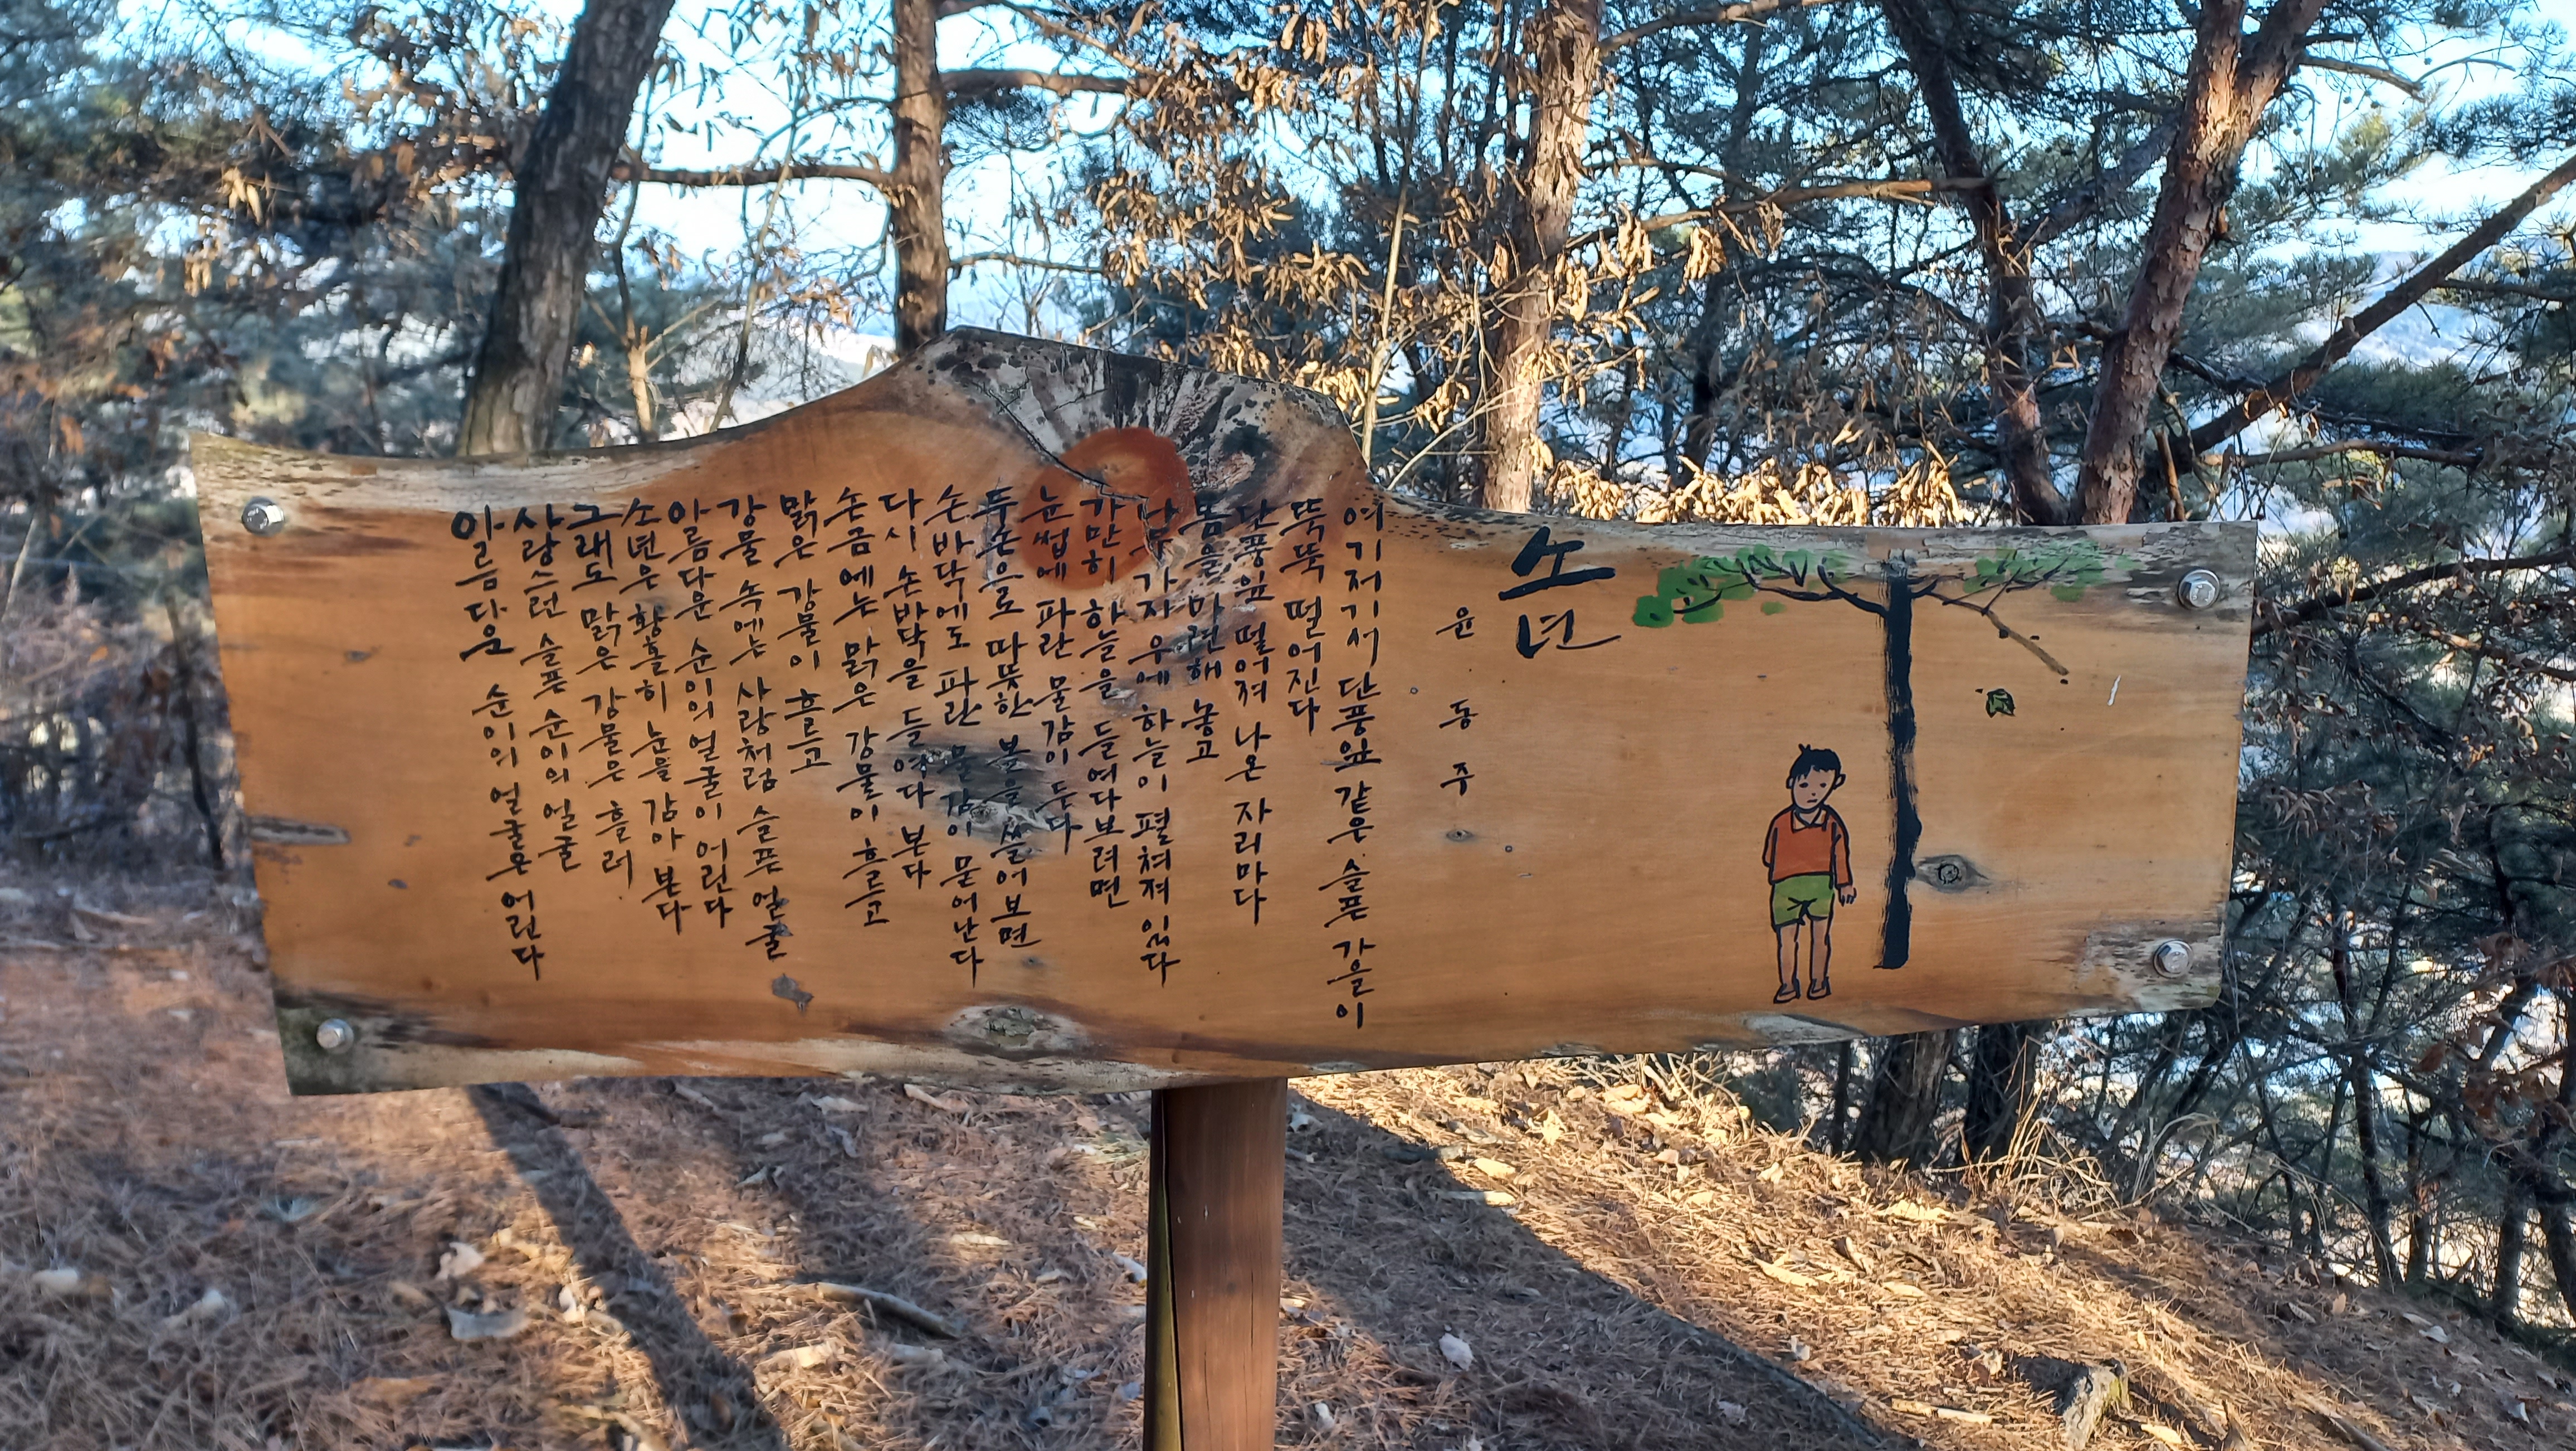 소년
윤동주
여기저기서 단풍잎 같은 슬픈 가을이
뚝뚝 떨어진다
단풍잎 떨어져 나온 자리마다
봄을 마련해 놓고
나무 가지 우에 하늘이 펼쳐져 있다
가만히 하늘을 들여다보려면
눈썹에 파란 물감이 든다
두 손으로 따뜻한 볼을 쓸어보면
손바닥에도 파란 물감이 묻어난다
다시 손바닥을 들여다 본다
손금에는 맑은 강물이 흐르고
맑은 강물이 흐르고
강물 속에는 사랑처럼 슬픈 얼굴
아름다운 순이의 얼굴이 어린다
소년은 황홀히 눈을 감아 본다
그래도 맑은 강물은 흘러
사랑스런 슬픈 순이의 얼굴
아름다운 순이의 얼굴은 어린다